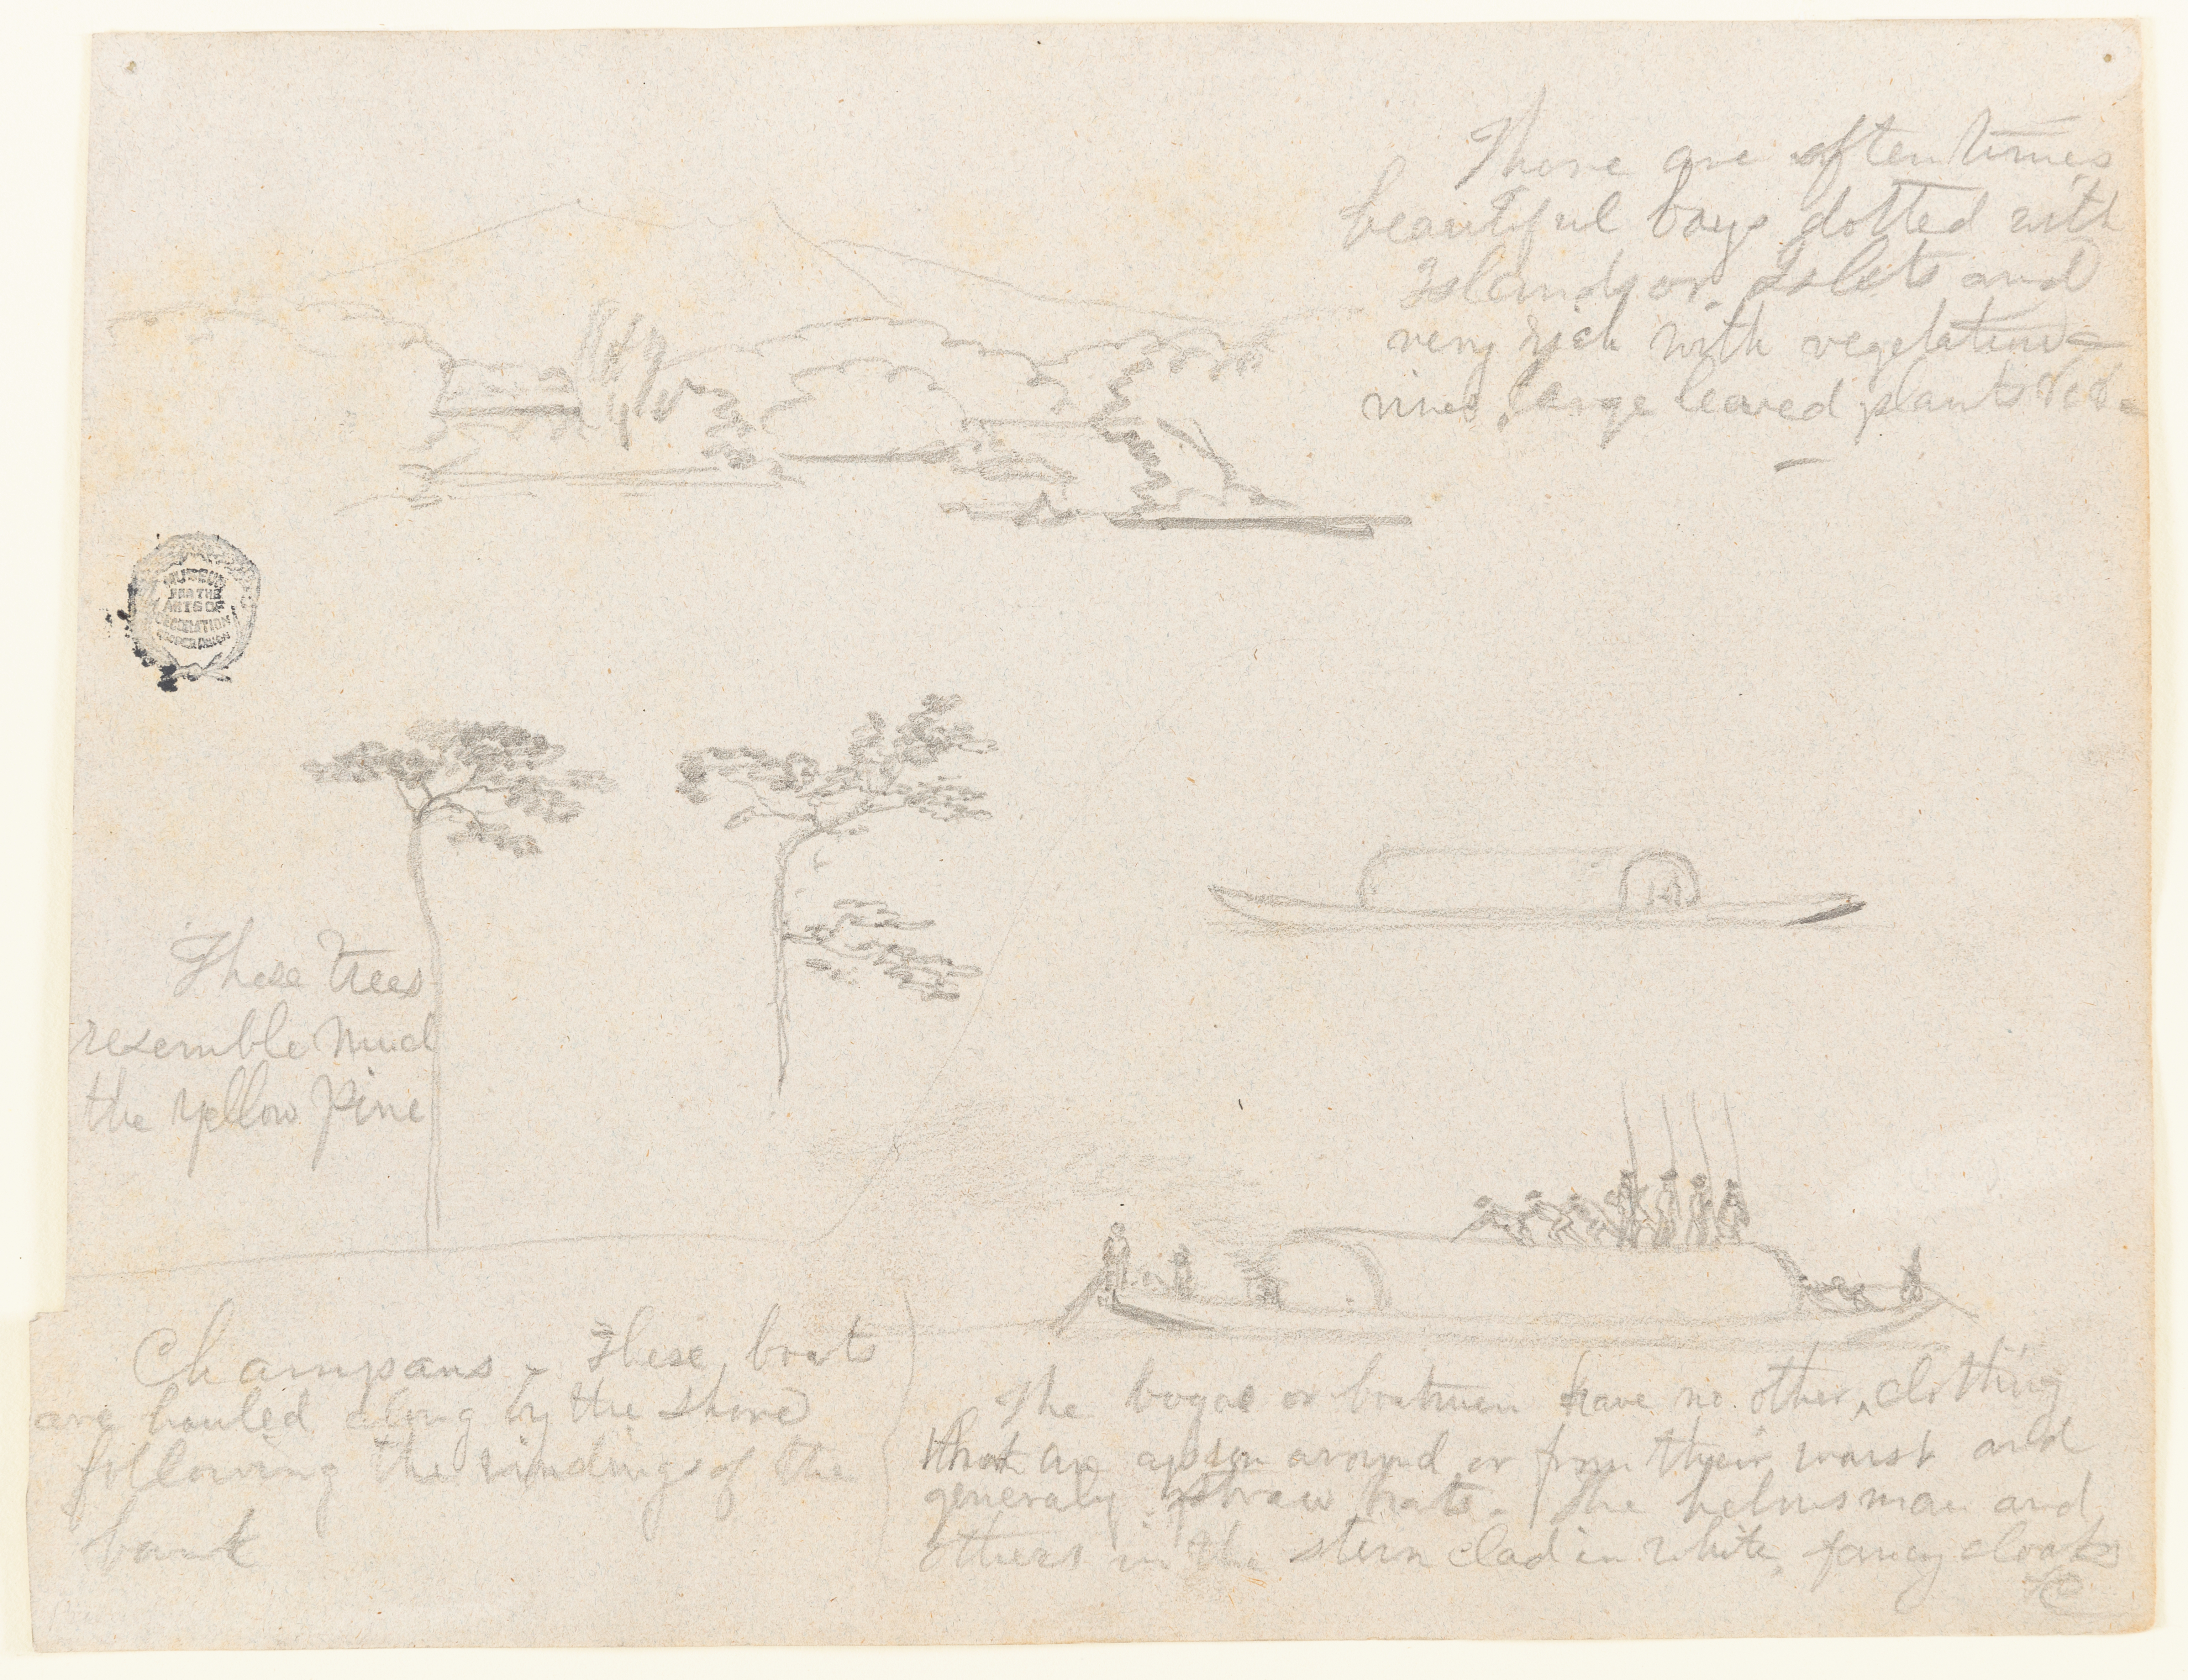 There are often times
beautiful bays dotted with
Islands or Islets and
very rich with vegetation
vines, large leaved plants &c &c
MUSEUM
FOR THE
ARTS OF
DECORATION
COOPER UNION
These trees
resemble much
the yellow pine
Champans - These boats
are hauled along by the shore
following the windings of the
bank
The bogas or boatmen have no other clothing
than an apron around or from their waist and
generaly straw hats. The helmsman and
others in the stern clad in white, fancy cloaks
&c